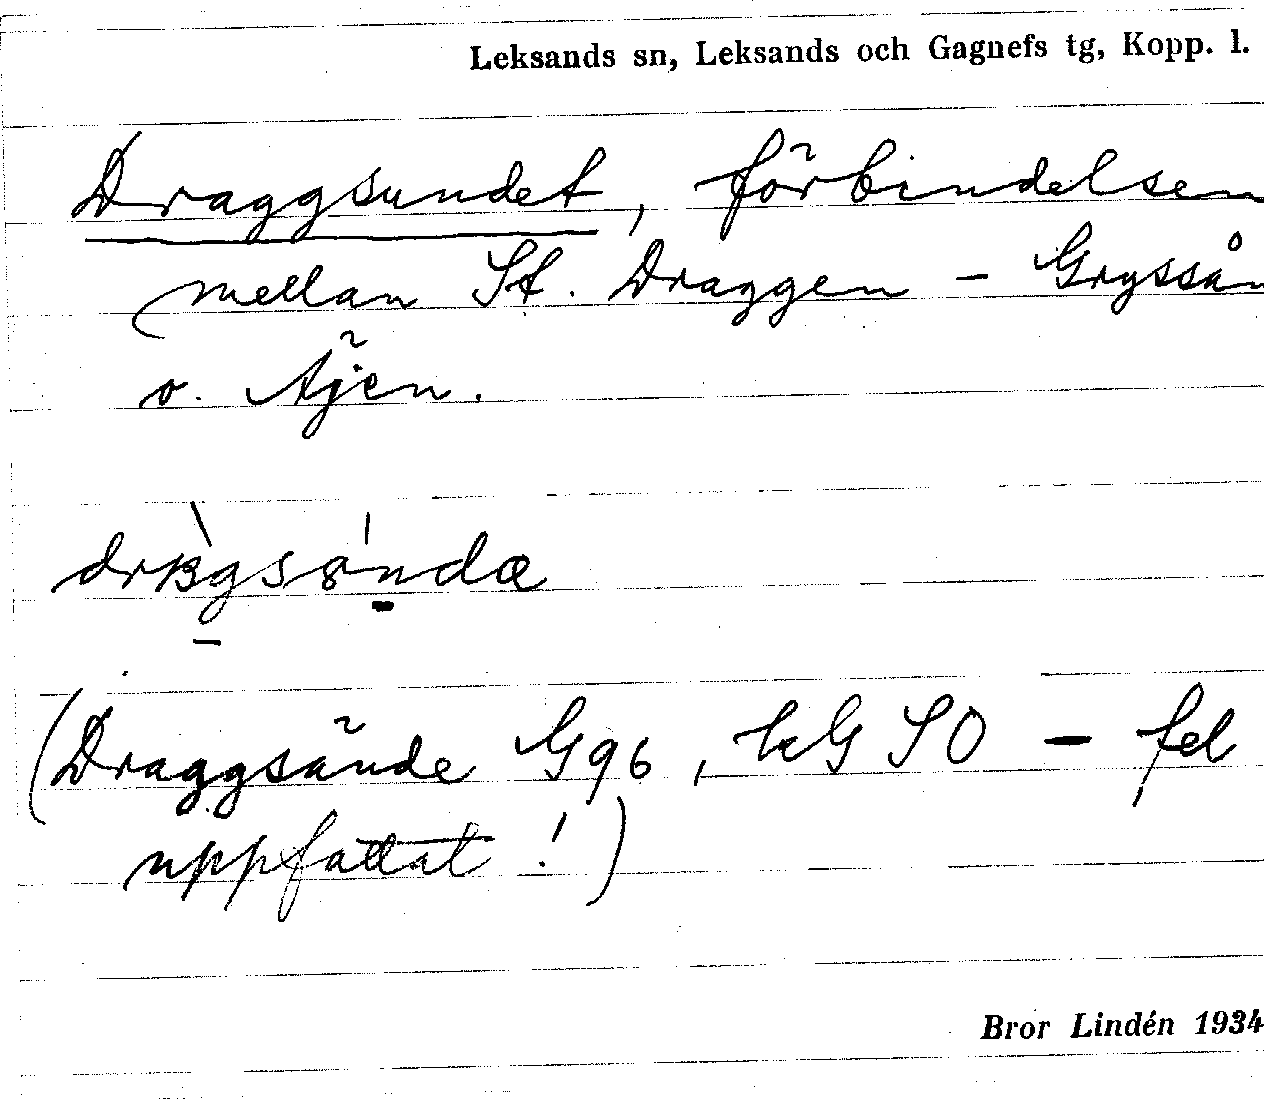 Leksands sn, Leksands och Gagnefs tg, Kopp. l.
Draggsundet, förbindelsen
mellan St. Draggen – Gryssån
o. Äjen.
(Draggsände G96, hG SO – fel
uppfattat!)
Bror Lindén 1934